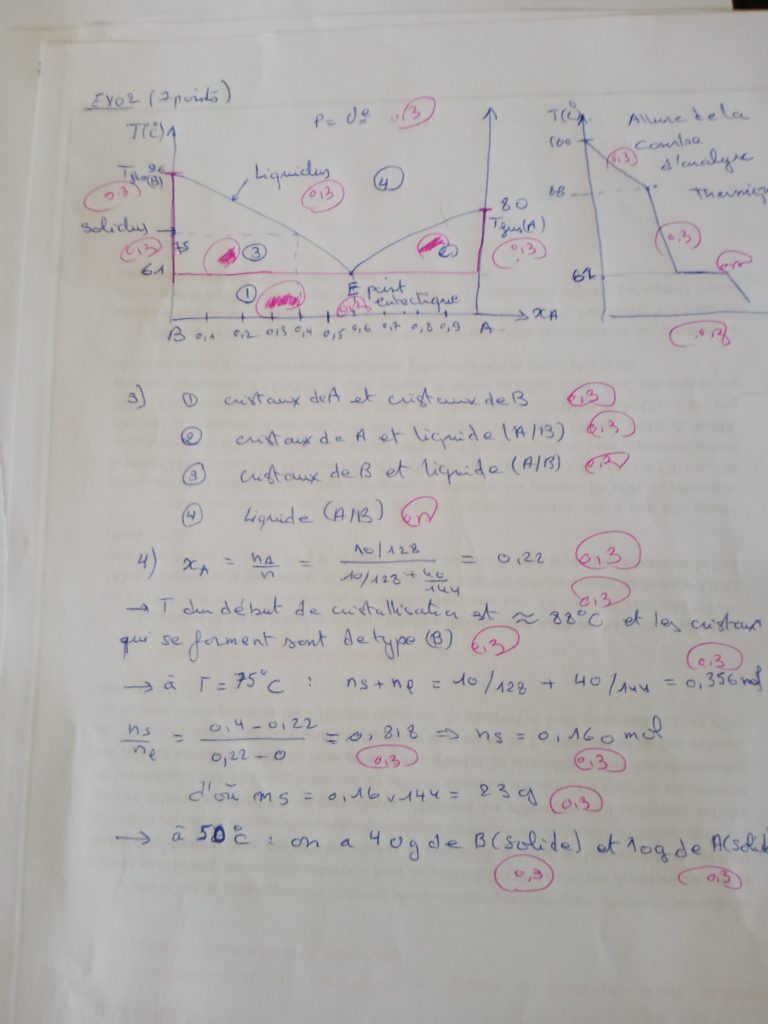 EXO2 (7 points)
P = de 0,3
T(°C)
T(°C)
Allure de la
courbe
d'analyse
Thermique
100
0,3
88
0,3
61
Tfus(B)
0,3
Liquidus
0,3
4
80
Tfus(A)
0,3
Solidus
0,3
75
3
61
1
E point
eutectique
B 0,1 0,2 0,3 0,4 0,5 0,6 0,7 0,8 0,9 A xA
3) 1 cristaux de A et cristaux de B 0,3
2 cristaux de A et liquide (A/B) 0,3
3 cristaux de B et liquide (A/B) 0,2
4 Liquide (A/B)
4) xA = nA/n = (10/128)/(10/128 + 40/144) = 0,22 0,3
0,3
→ T du début de cristallisation est ≈ 88°C et les cristaux
qui se forment sont de type (B) 0,3
0,3
→ à T = 75°C : ns + nl = 10/128 + 40/144 = 0,356 mol
ns/nl = (0,4 - 0,22)/(0,22 - 0) = 0,818 ⇒ ns = 0,160 mol
0,3 0,3
d'où ms = 0,16 x 144 = 23 g 0,3
→ à 50°C : on a 40g de B (solide) et 10g de A (solid
0,3 0,3